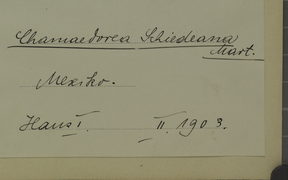 Chamaedorea Schiedeana
Mart.
Mexiko.
Haus I. II. 1903.